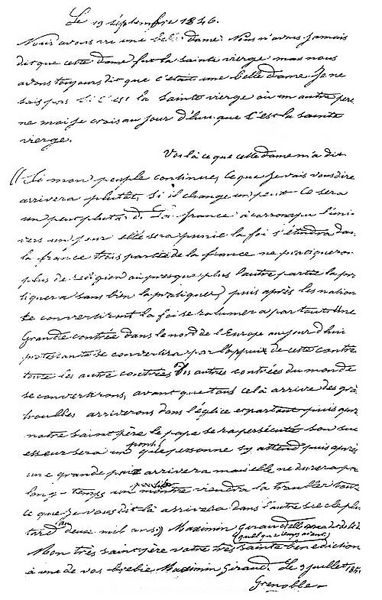 Le 19 septembre 1846.
Nous avons vu une belle dame. Nous n'avons jamais
dit que cette dame fut la sainte vierge mais nous
avons toujours dit que c'était une belle dame. Je ne
sais pas si c'est la sainte vierge ou un autre pers
ne moi je crois au jour d'hui que c'est la sainte
vierge.
Voila ce que cette dame m'a dit.
Si mon peuple continue, ce que je vais vous dire
arrivera plutôt, si il change un peu, ce sera
un peu plus tard. La france a corrompu l'uni
vers un jour elle sera punie la foi s'éteindra dans
la france trois partie de la france ne pratiqueron
plus de religion ou presque plus l'autre partie la pra
tiquera sans bien la pratiquer puis après les nation
se convertiront la foi se ralumera partout une
Grande contrée dans le nord de l'Europe aujourd'hui
protestante se convertira par l'appuie de cette contré
toute les autres contrées du monde
se convertirons, avant que tous cela arrive des gra
troubles arriverons dans l'église et partout puis après
notre saint père le pape sera persécuté son suc
esseur sera un pontif que personne y attend puis après
une grande paix arrivera mais elle ne durera pa
long-temps un monstre viendra la troubler tout
ce que je vous dit là arrivera dans l'autre siècle plus
tard au deux mil ans Maximin Giraud
Mon très saint père votre très sainte bénédiction
à une de vos brebie Maximin Giraud. Le 3 juillet 1851
Grenoble